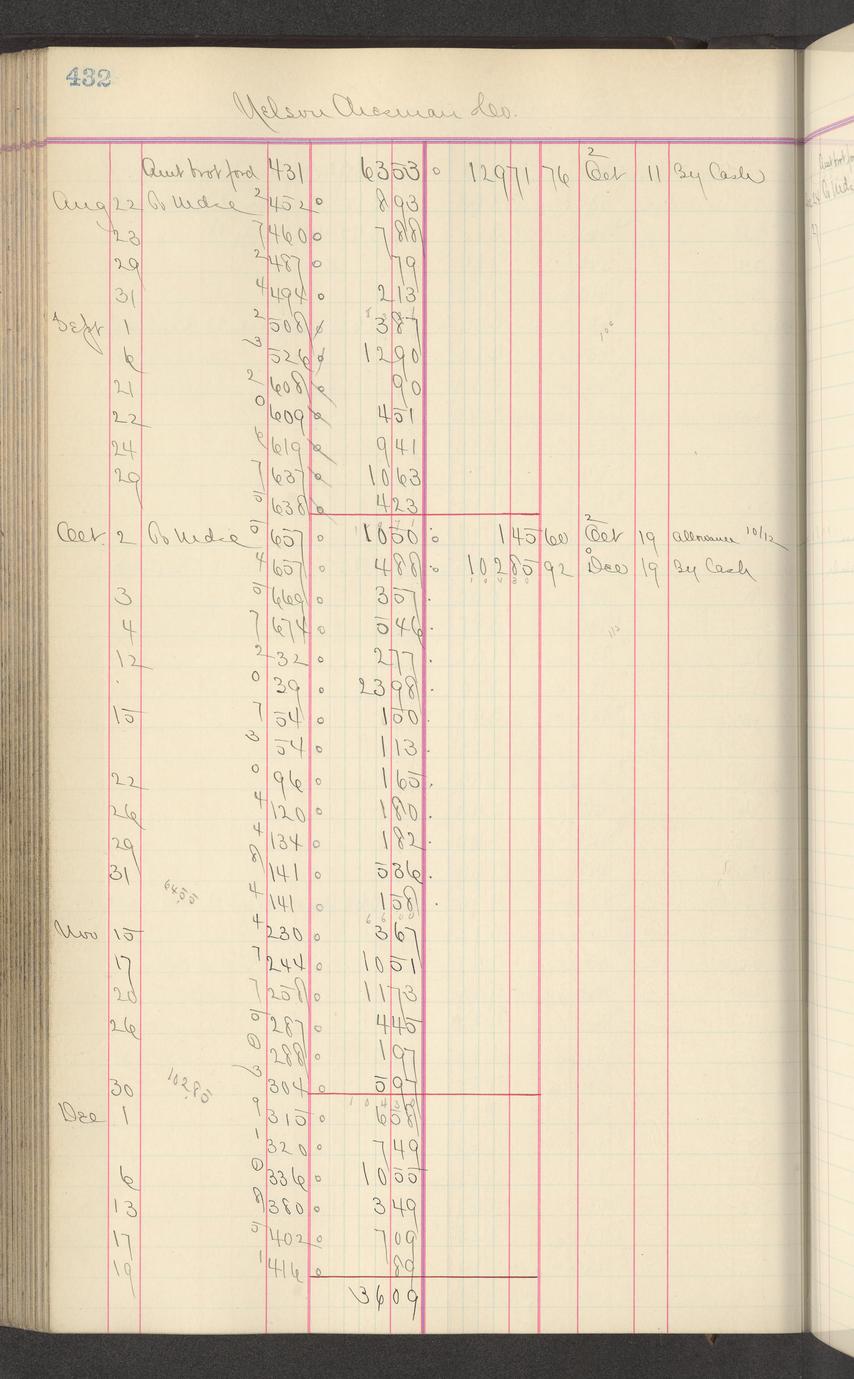 432
Nelson Co.
Amt brot ford 431 63 53 12971 76 Oct 11 By Cash
Aug 22 To Mdse 2 452 8 93
23 7 460 7 88
29 2 487 79
31 4 494 2 13
Sept 1 2 508 3 87
6 3 526 12 90
21 2 608 90
22 0 609 4 51
24 6 619 9 41
29 7 637 10 63
5 638 4 23
Oct 2 To Mdse 5 657 10 50 145 60 2 Oct 19 allowance 10/12
4 657 4 88 10285 92 0 Dec 19 By Cash
3 5 669 3 57
4 7 674 5 46
12 2 32 2 77
0 39 23 98
15 7 54 1 50
3 54 1 13
22 0 96 1 65
26 4 120 1 80
29 4 134 1 82
31 8 141 5 36
6455 4 141 1 58
Nov 15 4 230 3 67
17 7 244 10 51
20 7 258 11 73
26 5 287 4 45
0 288 1 97
30 10285 3 304 5 97
Dec 1 9 315 6 58
1 320 7 49
6 0 336 10 55
13 8 380 3 49
17 5 402 7 09
19 1 416 89
36 09